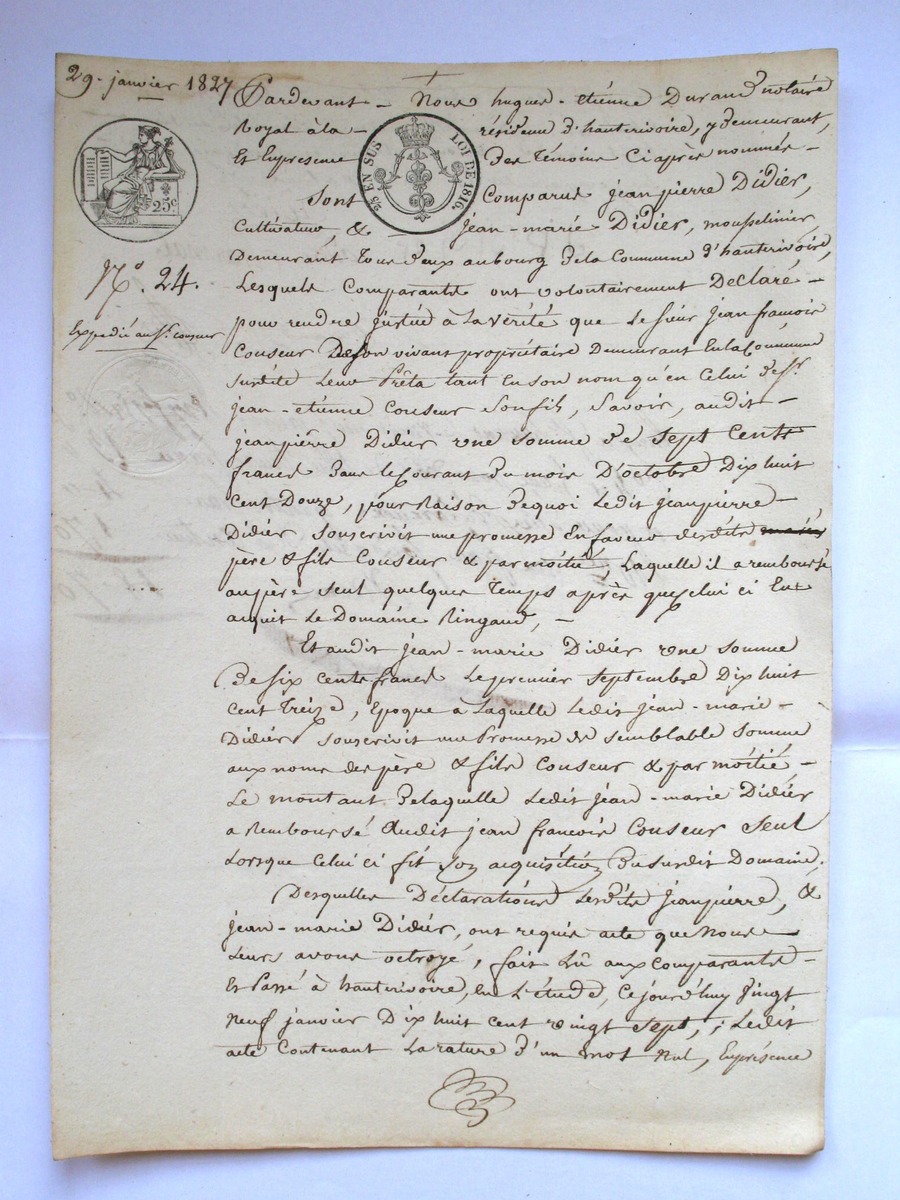 29. janvier 1827
Pardevant - Nous hugues-etiénne Durand notaire
Royal à la - résidence d'hauterivoire, y demeurant,
Et En presence des témoins Ci après nommés -
2/5 EN SUS LOI DE 1816.
25c
Sont Comparus jean pierre Didier,
Cultivateur, & jean-marie Didier, mousselinier,
N.º 24.
Demeurant tous deux au bourg de la Commune d'hauterivoire,
Lesquels Comparants ont volontairement Déclaré -
Expedié au Sr. couseur
pour rendre justice à La vérité que Le sieur jean francois
Couseur De son vivant propriétaire Demeurant En la Commune
susdite Leur Prêta tant En son nom qu'en Celui de Sr.
jean-etiénne Couseur Son fils, Savoir, audit -
jeanpiérre Didier une somme de sept Cents
francs Dans le Courant Du mois D'octobre Dix huit
Cent Douze, pour Raison De quoi Ledit jeanpierre -
Didier souscrivit une promesse En faveur desdits
père & fils Couseur & par moitié, Laquelle il a remboursé
au père seul quelques temps après que Celui ci Eut
acquit Le Domaine Ringaud, -
Et audit jean-marie Didier une somme
De six Cents francs Le premier septembre Dix huit
Cent Treize, Epoque à Laquelle Ledit jean-marie -
Didier souscrivit une Promesse de semblable somme
aux noms des père & fils Couseur & par moitié -
Le montant De laquelle Ledit jean-marie Didier
a Remboursé audit jean francois Couseur seul
Lorsque Celui ci fit son acquisition Du susdit Domaine.
Desquelles Déclarations Lesdits jeanpierre, &
jean-marie Didier, ont requis acte que Nous
Leurs avons octroyé, fait Lû aux Comparants -
Et Passé à hauterivoire, En L'étude, Ce jourd'huy Vingt
Neuf janvier Dix huit Cent vingt sept, ; Ledit
acte Contenant La rature d'un mot Nul, En présence